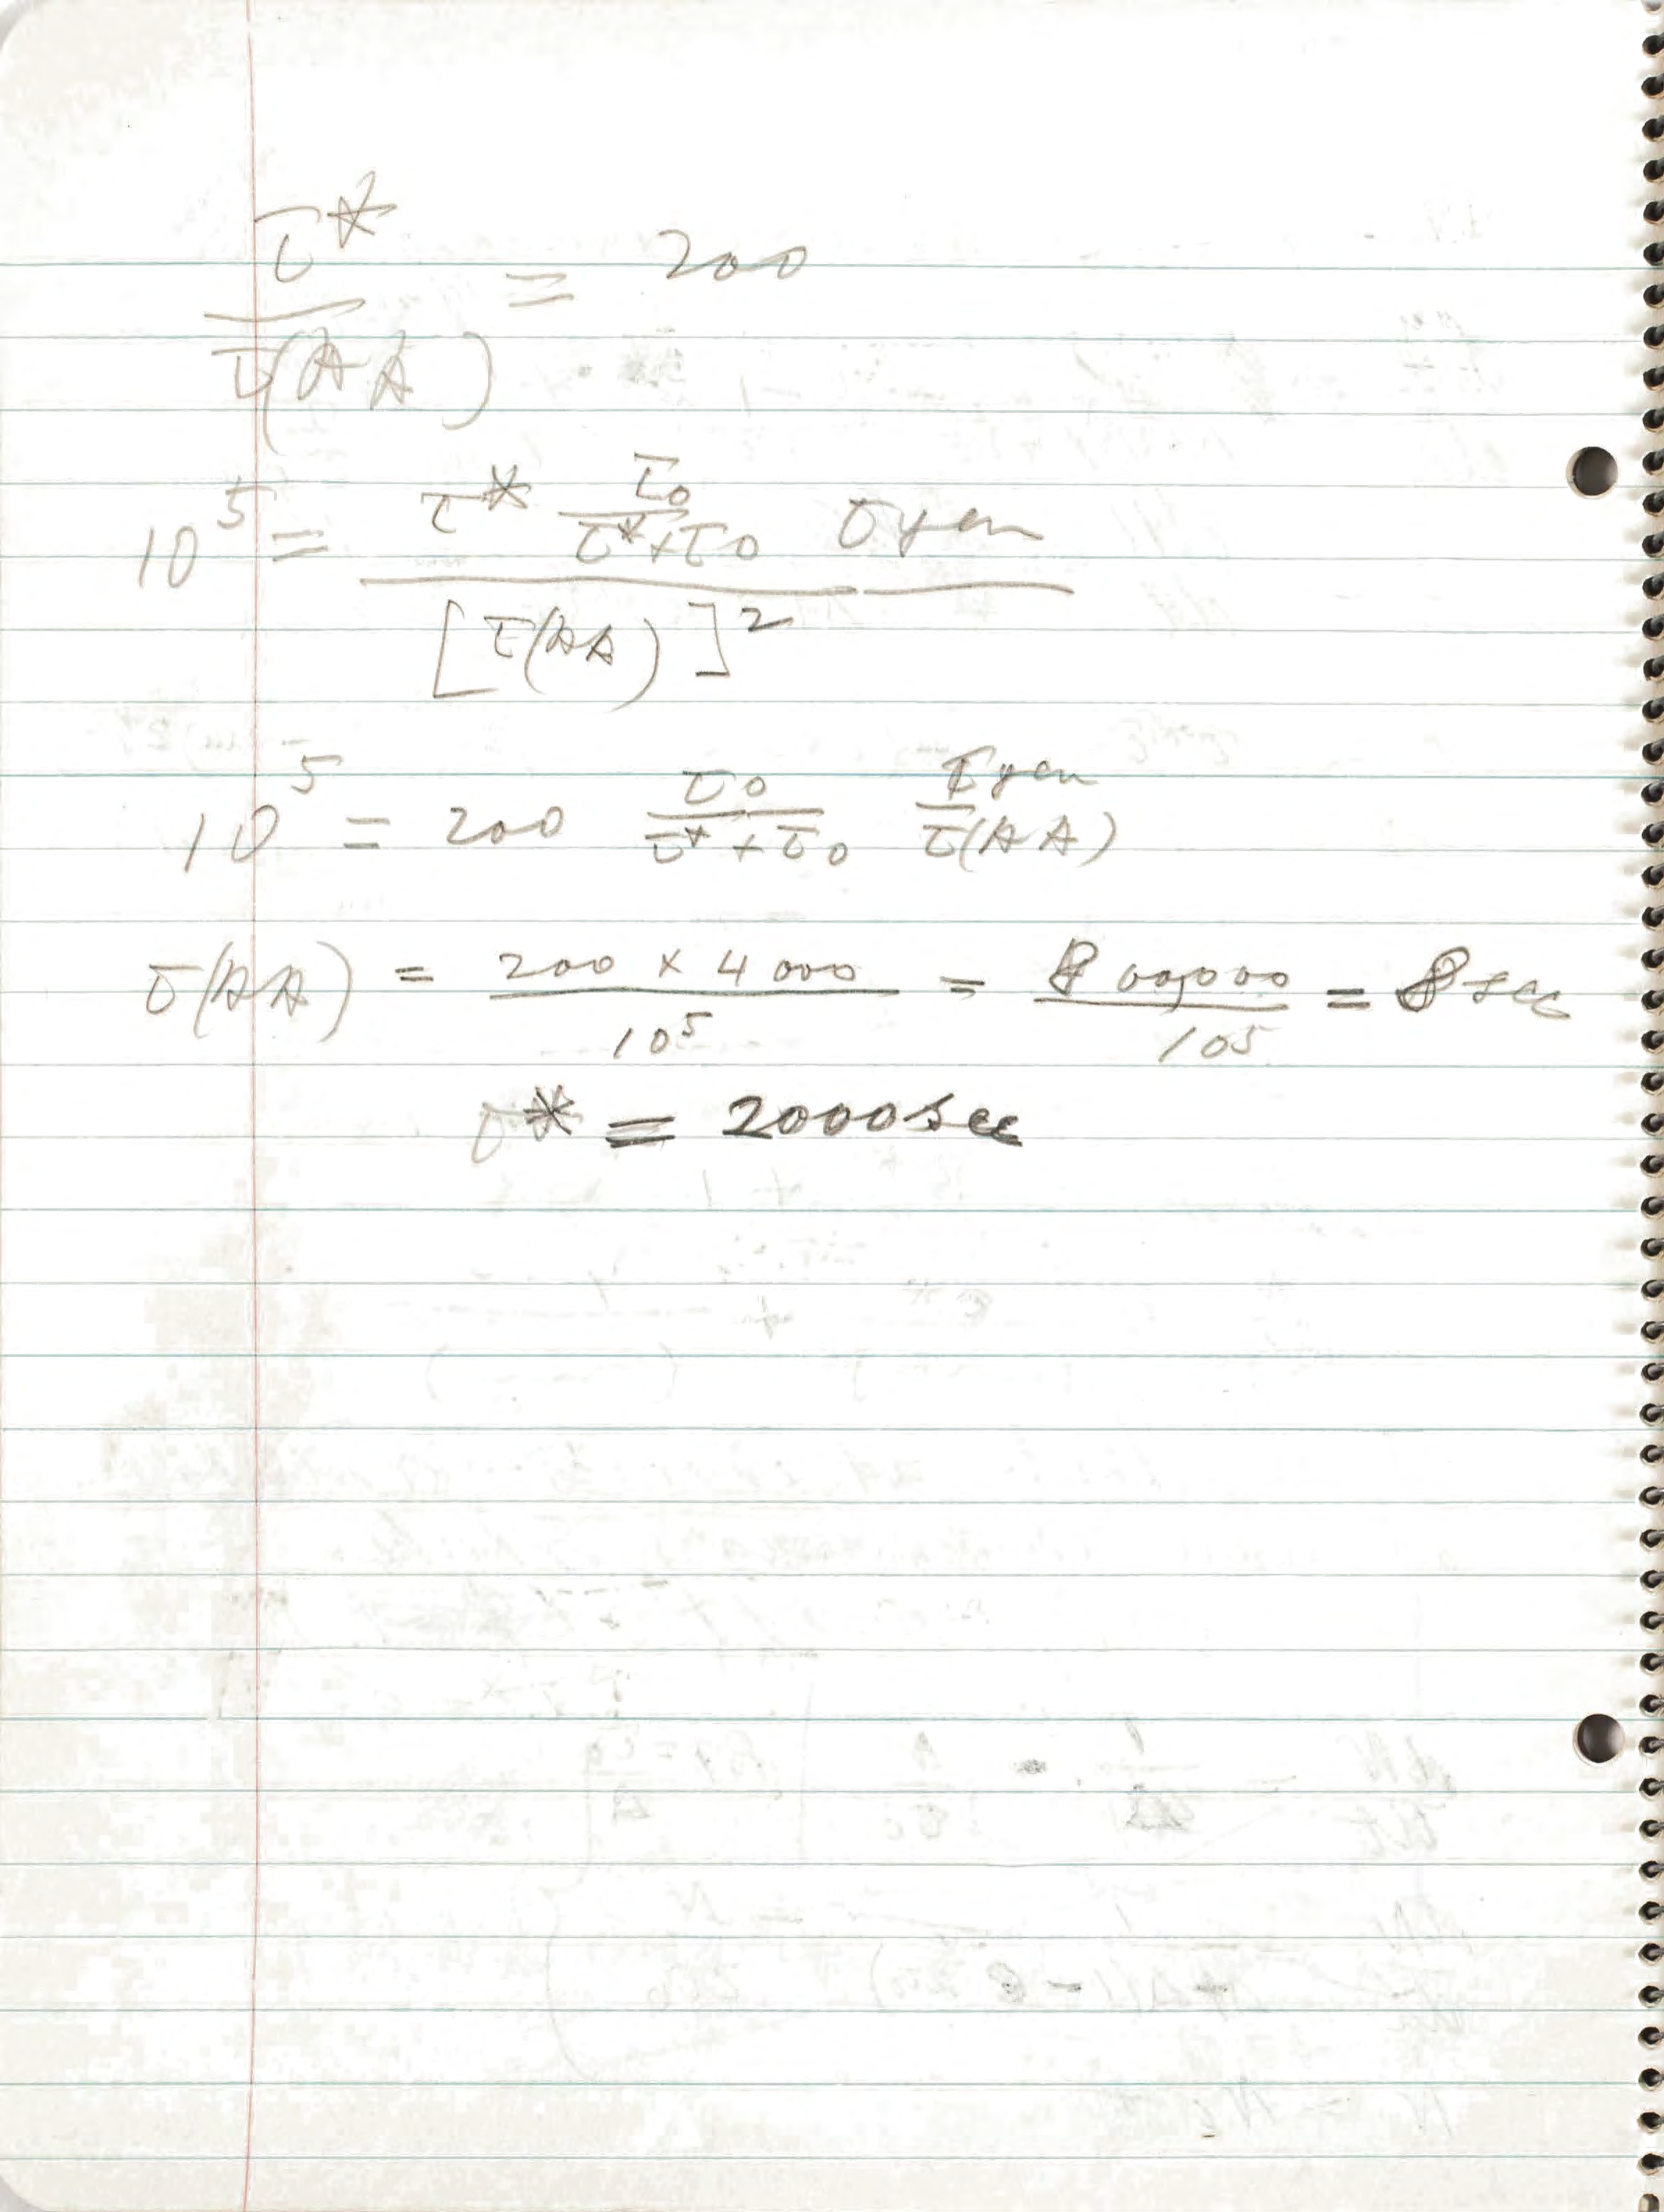 τ* / τ(AA) = 200
10^5 = τ* τ0/(τ*+τ0) τgen / [τ(AA)]^2
10^5 = 200 τ0/(τ*+τ0) τgen/τ(AA)
τ(AA) = 200 x 4000 / 10^5 = 800,000 / 10^5 = 8 sec
τ* = 2000 sec